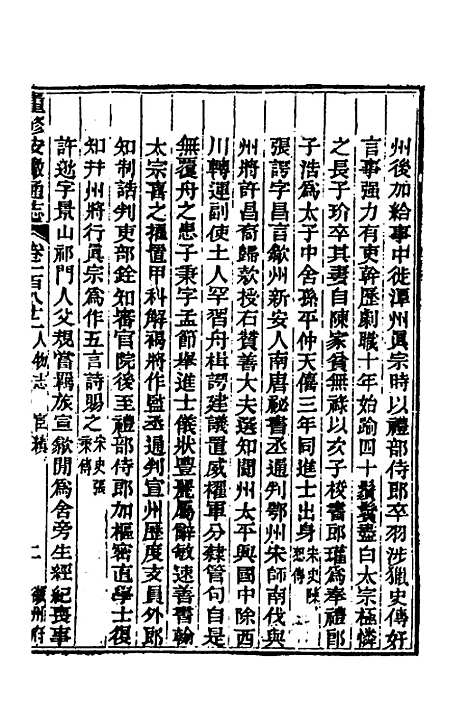 州後加給事中徙潭州眞宗時以禮部侍郎卒羽涉獵史傳好
言事强力有吏幹歷劇職十年始踰四十鬚鬢盡白太宗極憐
之長子玠卒其妻自陳家貧無祿以次子校書郎瓘爲奉禮郎
子浩爲太子中舍孫平仲天僖三年同進士出身宋史陳恕傳
張諤字昌言歙州新安人南唐祕書丞通判鄂州宋師南伐與
州將許昌裔歸款授右贊善大夫選知閬州太平興國中除西
川轉運副使土人罕習舟楫諤建議置威櫂軍分隷管句自是
無覆舟之患子秉字孟節舉進士儀狀豐麗屬辭敏速善書翰
太宗喜之擢置甲科解褐將作監丞通判宣州歷度支員外郎
知制誥判吏部銓知審官院後至禮部侍郎加樞密直學士復
知幷州將行眞宗爲作五言詩賜之宋史張秉傳
許逖字景山祁門人父規嘗羈旅宣歙閒爲舍旁生經紀喪事
重修安徽通志 卷一百八十二 人物志 宦績 二 徽州府